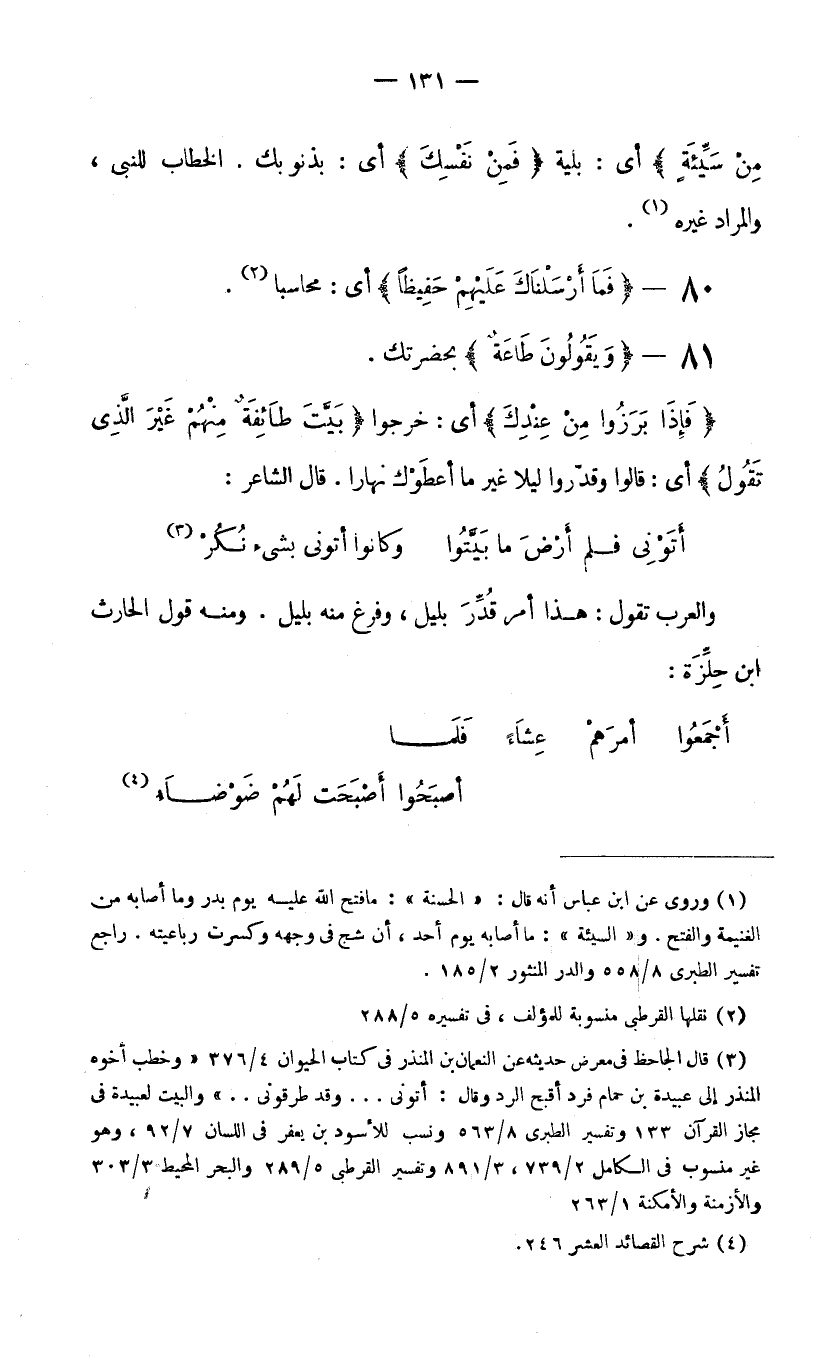 — ١٣١ —
مِنْ سَيِّئَةٍ ﴾ أى : بلية ﴿ فَمِنْ نَفْسِكَ ﴾ أى : بذنوبك . الخطاب للنبى ،
والمراد غيره (١) .
٨٠ — ﴿ فَمَا أَرْسَلْنَاكَ عَلَيْهِمْ حَفِيظاً ﴾ أى : محاسبا (٢) .
٨١ — ﴿ وَيَقُولُونَ طَاعَةٌ ﴾ بحضرتك .
﴿ فَإِذَا بَرَزُوا مِنْ عِنْدِكَ ﴾ أى : خرجوا ﴿ بَيَّتَ طَائِفَةٌ مِنْهُمْ غَيْرَ الَّذِى
تَقُولُ ﴾ أى : قالوا وقدّروا ليلا غير ما أعطَوْك نهارا . قال الشاعر :
أَتَوْنِى فـلم أَرْضَ ما بَيَّتُوا وكانوا أتونى بشىء نُـكُرْ (٣)
والعرب تقول : هـذا أمر قُدِّرَ بليل ، وفرغ منه بليل . ومنـه قول الحارث
ابن حِلِّزَة :
أَجْمَعُوا أمرَهمْ عِشاءً فَلَمَـــا
أصبَحُوا أَصْبَحَت لَهُمْ ضَوْضـــاَء (٤)
(١) وروى عن ابن عباس أنه قال : « الحسنة » : مافتح الله عليـه يوم بدر وما أصابه من
الغنيمة والفتح . و« السيئة » : ما أصابه يوم أحد ، أن شج فى وجهه وكسرت رباعيته . راجع
تفسير الطبرى ٥٥٨/٨ والدر المنثور ١٨٥/٢ .
(٢) نقلها القرطبى منسوبة للمؤلف ، فى تفسيره ٢٨٨/٥
(٣) قال الجاحظ فى معرض حديثه عن النعمان بن المنذر فى كتاب الحيوان ٣٧٦/٤ « وخطب أخوه
المنذر إلى عبيدة بن همام فرد أقبح الرد وقال : أتونى ... وقد طرقونى .. » والبيت لعبيدة فى
مجاز القرآن ١٣٣ وتفسير الطبرى ٥٦٣/٨ ونسب للأسود بن يعفر فى اللسان ٩٢/٧ ، وهو
غير منسوب فى الـكامل ٧٣٩/٢ ، ٨٩١/٣ وتفسير القرطبى ٢٨٩/٥ والبحر المحيط ٣٠٣/٣
والأزمنة والأمكنة ٢٦٣/١
(٤) شرح القصائد العشر ٢٤٦.